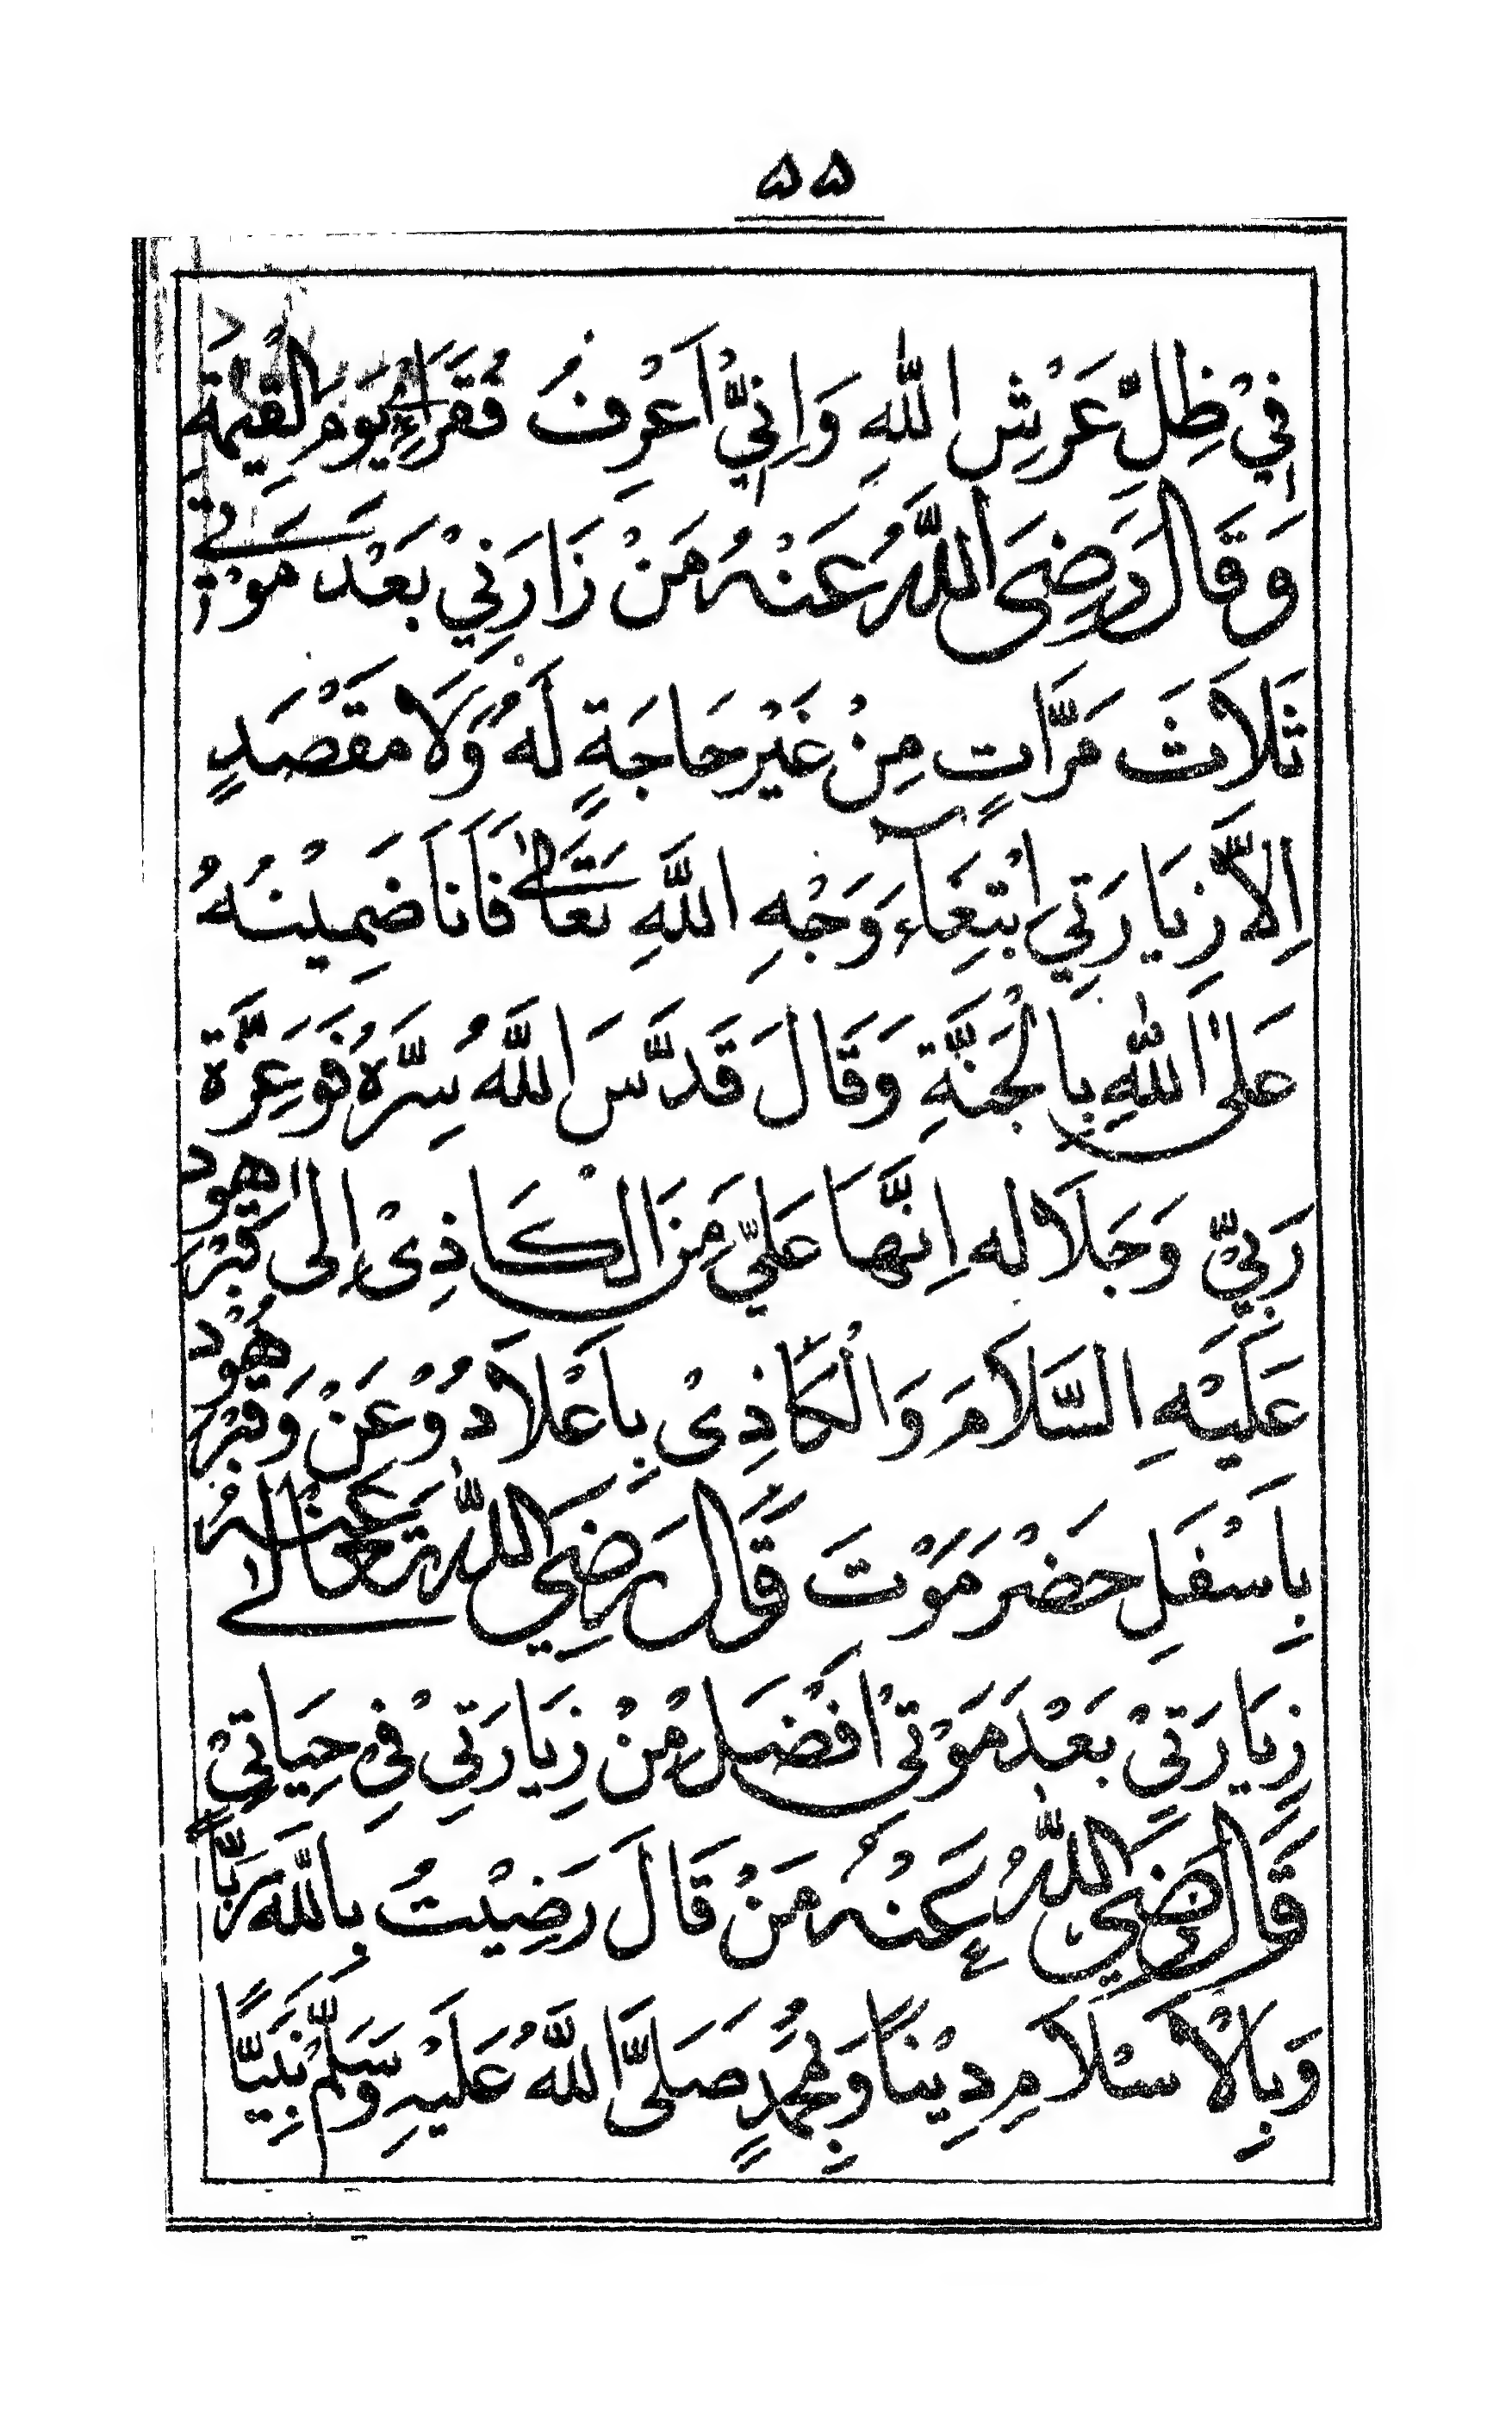 ۵۵
فِيْ ظِلِّ عَرْشِ اللهِ وَاِنِّيْ اَعْرِفُ فُقَرَاءِيْ يَوْمَ الْقِيٰمَةِ
وَقَالَ رَضِيَ اللّٰهُ عَنْهُ مَنْ زَارَنِيْ بَعْدَ مَوْتِيْ
ثَلَاثَ مَرَّاتٍ مِنْ غَيْرِ حَاجَةٍ لَهُ وَلَا مَقْصَدٍ
اِلَّا زِيَارَتِي اِبْتِغَآءَ وَجْهِ اللّٰهِ تَعَالٰى فَاَنَا ضَمِيْنُهُ
عَلَى اللهِ بِالْجَنَّةِ وَقَالَ قَدَّسَ اللّٰهُ سِرَّهُ فَوَعِزَّةِ
رَبِّيْ وَجَلَالِه اِنَّهَا عَلَيَّ مِنَ الْكَاذِيْ اِلٰى قَبْرِ هود
عَلَيْهِ السَّلَامَ وَالْكَاذِيْ بِاَعْلَا دُوْعَنْ وَقَبْرُ هُوْد
بِاَسْفَلِ حَضْرَمَوْتَ قَالَ رَضِيَ اللّٰهُ تَعَالٰى عَنْهُ
زِيَارَتِيْ بَعْدَ مَوْتِيْ اَفْضَلُ مِنْ زِيَارَتِيْ فِيْ حِيَاتِيْ
قَالَ رَضِيَ اللّٰهُ عَنْهُ مَنْ قَالَ رَضِيْتُ بِاللّٰهِ رَبًّا
وَبِالْاِسْلَامِ دِيْنًا وَبِمُحَمَّدٍ صَلَّى اللّٰهُ عَلَيْهِ وَسَلَّمْ نَبِيًّا